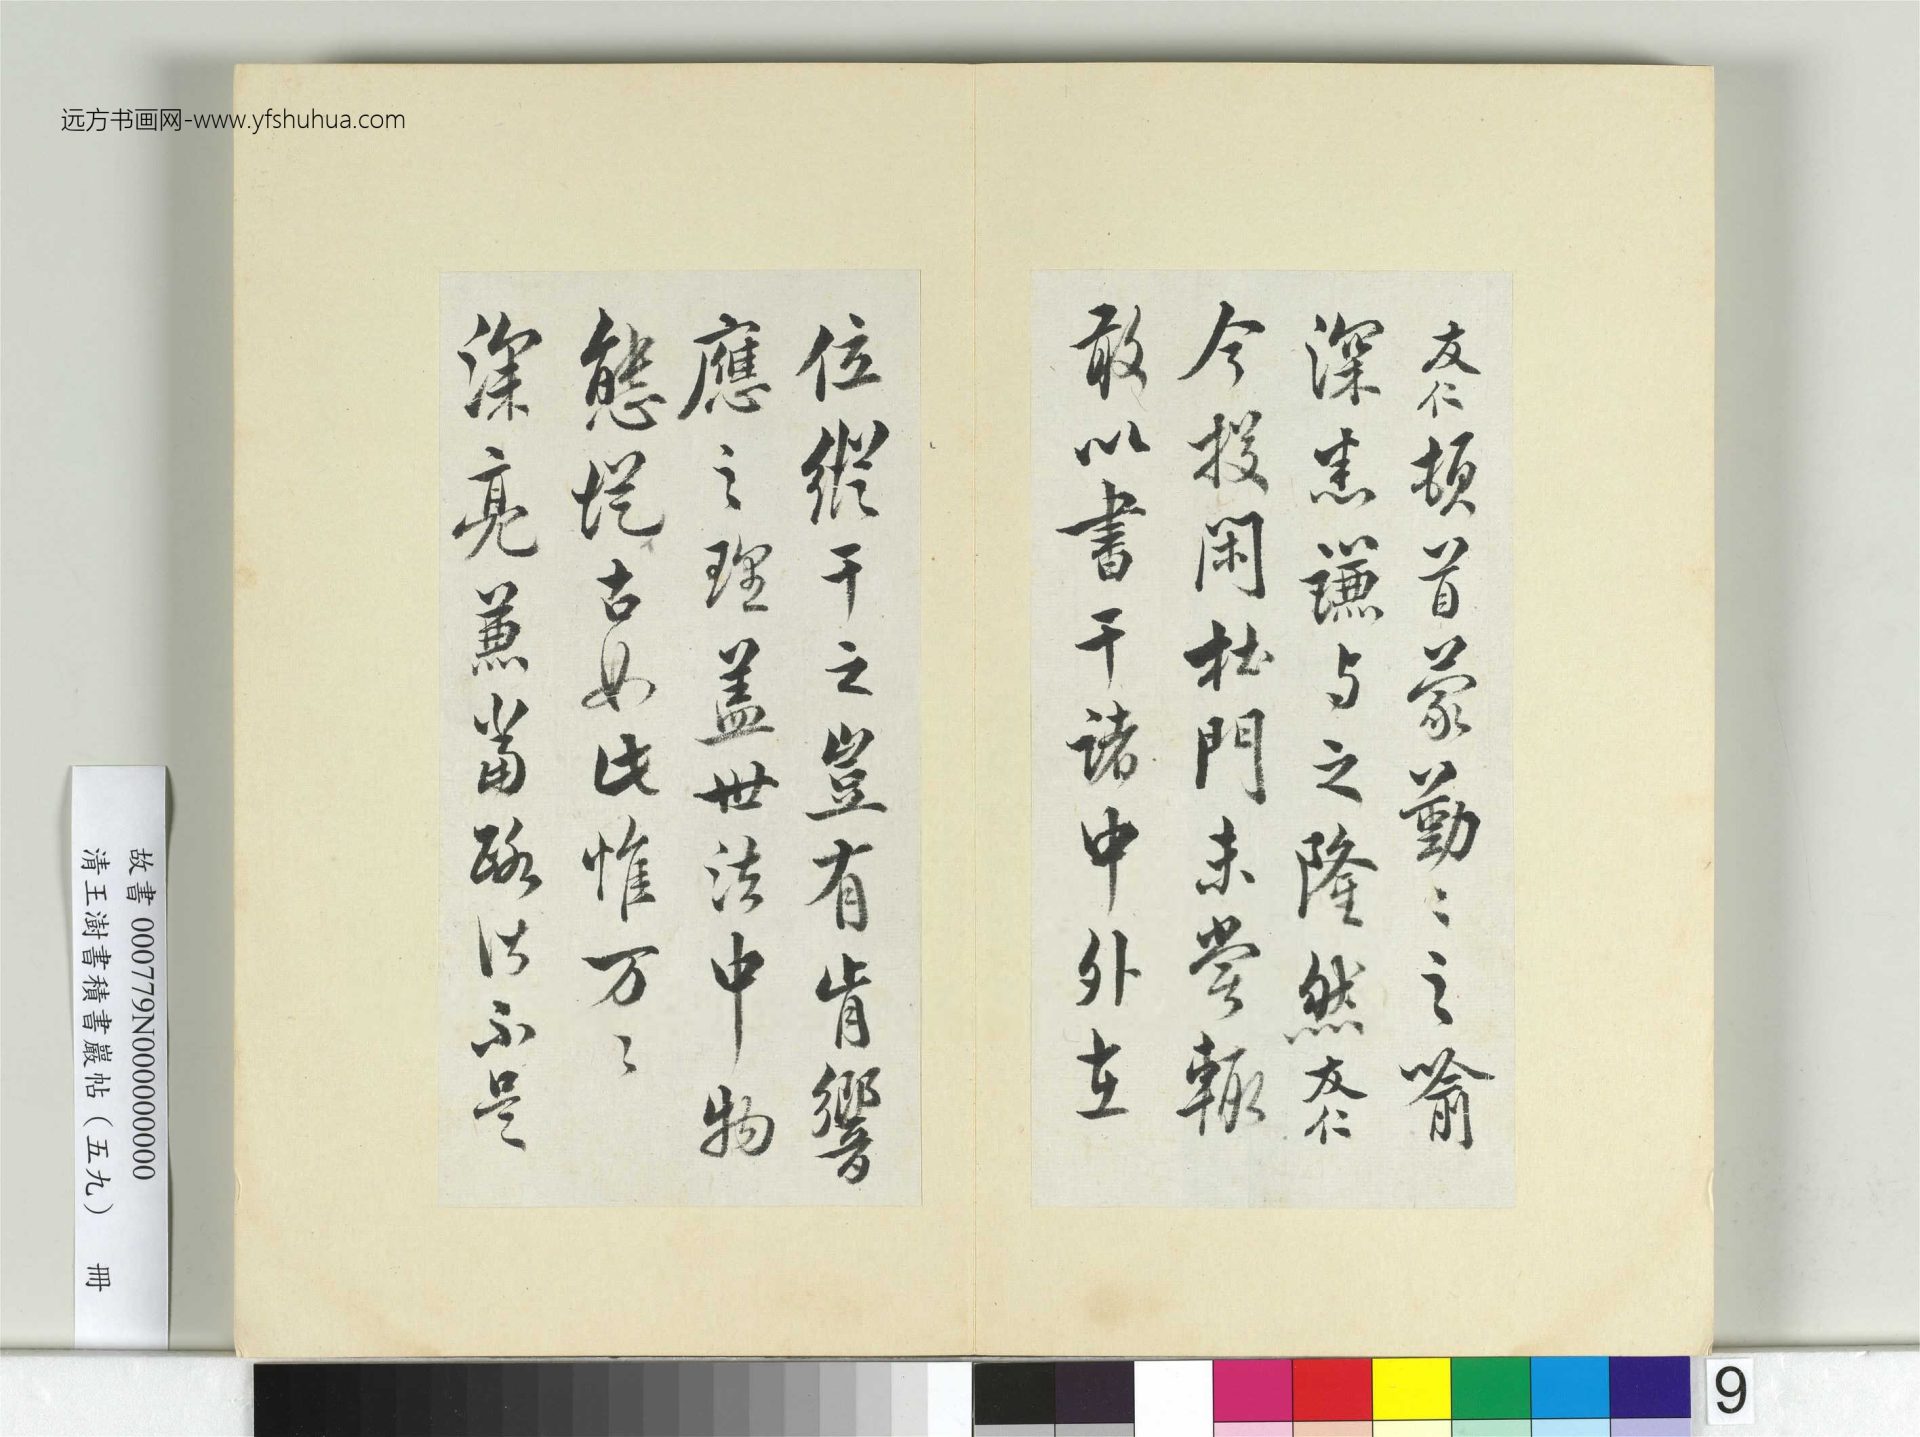 远方书画网-www.yfshuhua.com
友仁頓首蒙勤〻之喻
深悉謙与之隆然友仁
今投閑杜門未嘗輒
敢以書干諸中外在
位縱干之豈有肯響
應之理盖世法中物
態從古如此惟万〻
深亮兼當路不是
故書 000779N000000000
清王澍書積書巖帖（五九） 冊
9